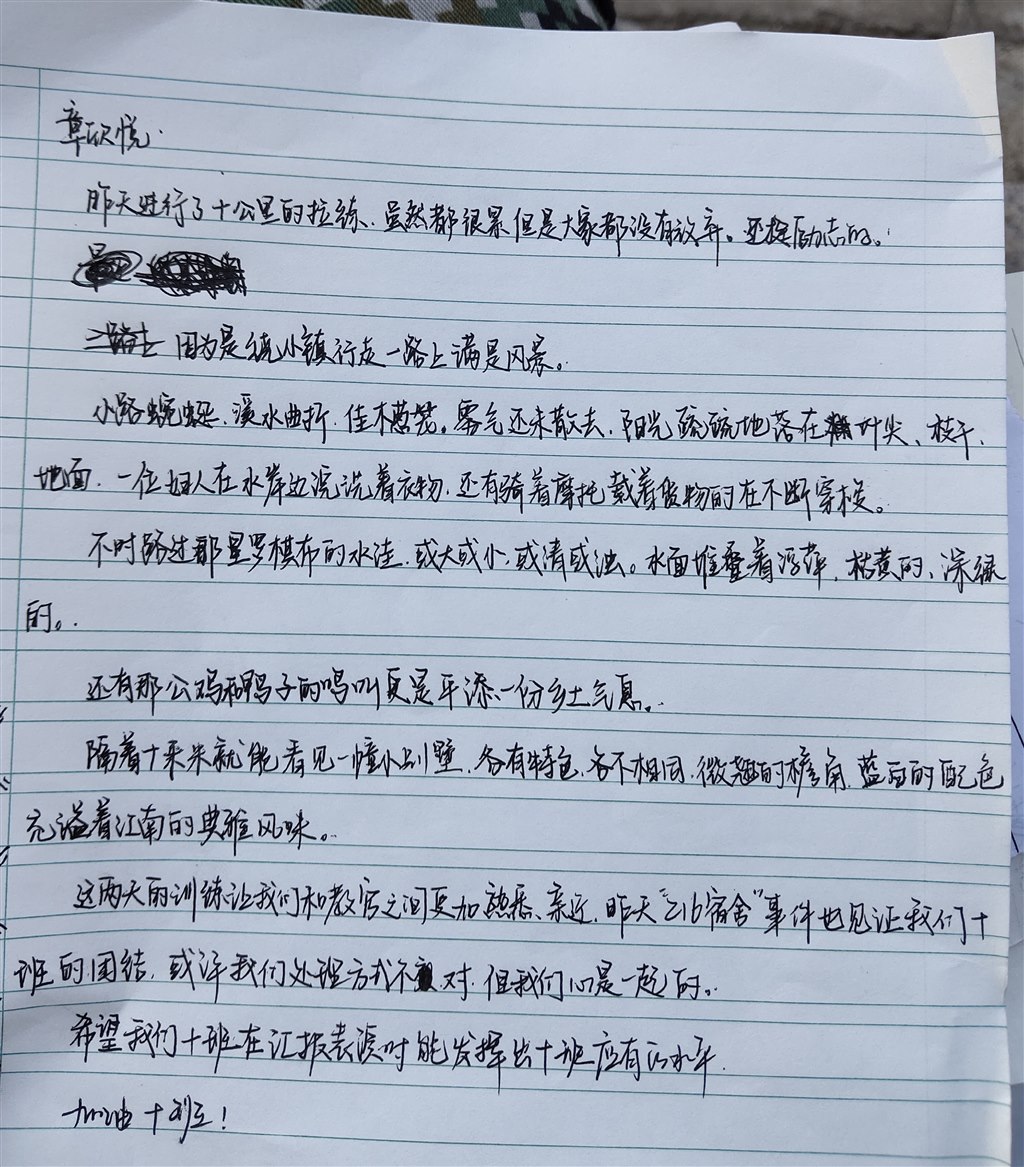 章欣悦.
昨天进行了十公里的拉练、虽然都很累但是大家都没有放弃。还挺励志的。
因为是绕小镇行走一路上满是风景。
小路蜿蜒、溪水曲折、佳木葱茏。雾气还未散去、阳光疏疏地落在叶尖、枝干、
地面、一位妇人在水岸边浣洗着衣物、还有骑着摩托载着货物的在不断穿梭。
不时路过那星罗棋布的水洼、或大或小、或清或浊。水面堆叠着浮萍、枯黄的、深绿
的。
还有那公鸡和鸭子的鸣叫更是平添一份乡土气息。
隔着十来米就能看见一幢小别墅、各有特色、各不相同、微翘的檐角、蓝白的配色
充溢着江南的典雅风味。
这两天的训练让我们和教官之间更加熟悉、亲近、昨天“216宿舍”事件也见证我们十
班的团结、或许我们处理方式不对、但我们心是一起的。
希望我们十班在汇报表演时能发挥出十班应有的水平.
加油十班！